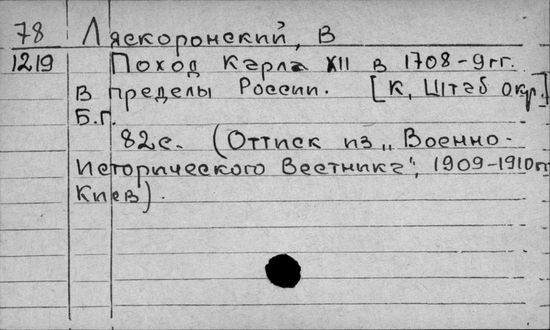 78 Ляскоронский, В
1219 Поход Карла XII в 1708-9гг.
в пределы России. [К, Штаб окр.]
Б.г.
82с. (Оттиск из „Военно-
исторического Вестника", 1909-1910гг
Киев).